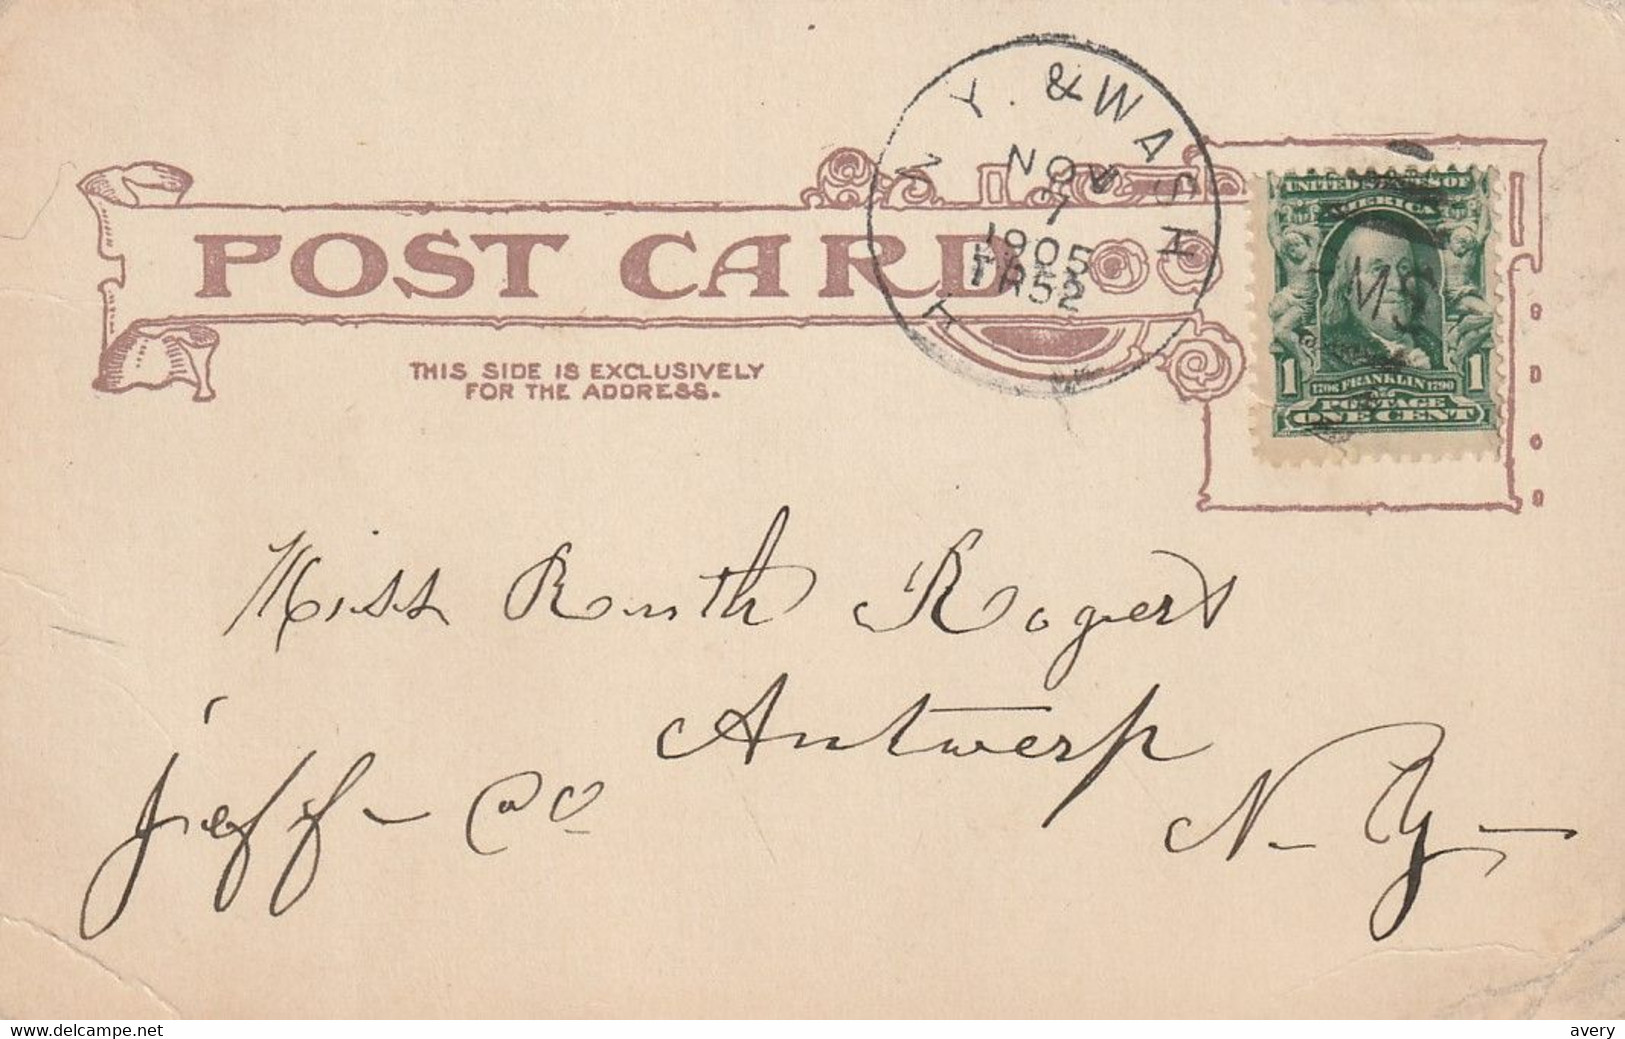 N. Y. & WASH
NOV
7
1905
TR52
POST CARD
THIS SIDE IS EXCLUSIVELY
FOR THE ADDRESS.
UNITED STATES OF
AMERICA
RMS
1 1706 FRANKLIN 1790 1
POSTAGE
ONE CENT
Miss Ruth Rogers
Antwerp
Jeff - Co
N. Y.
www.delcampe.net
avery